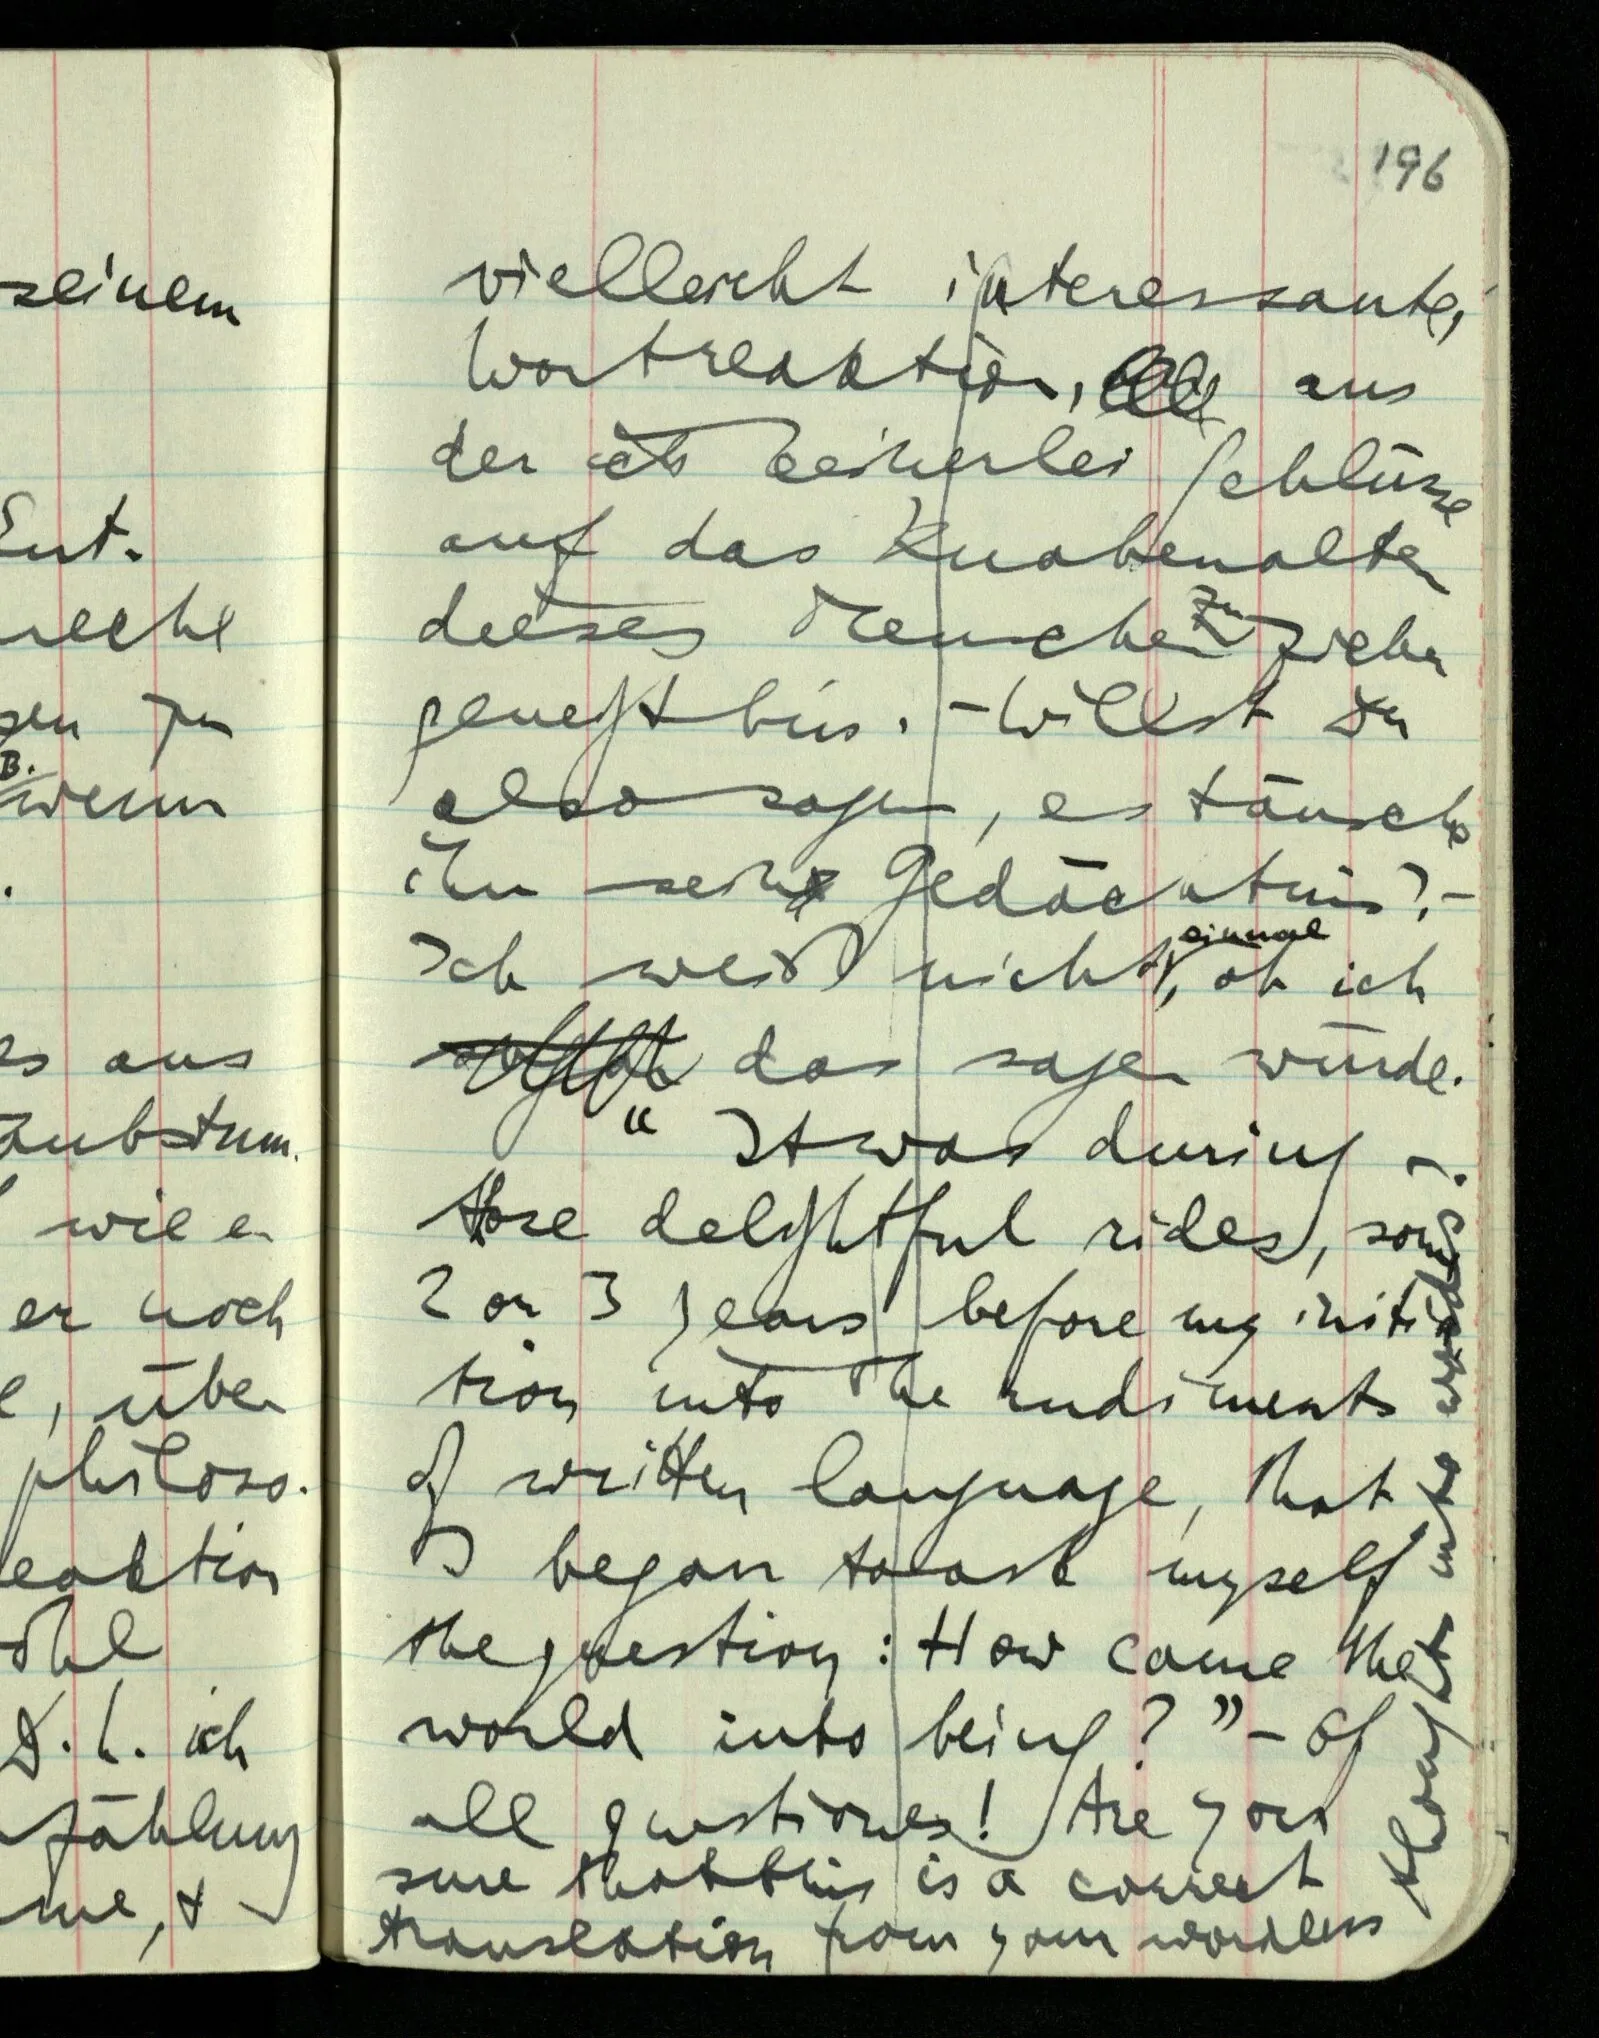 seinem
Ent-
reche
gen zu
B.
wenn
.
es aus
taubstum-
wie er
er noch
e, über
philoso-
reaktion
D.h. ich
rzählung
me, & –
196
vielleicht interessante,
Wortreaktion, aus
der ich keinerlei Schlüsse
auf das Knabenalter
dieses Menschen zu ziehen
geneigt bin. – Willst Du
also sagen, es täusche
ihn sein Gedächtnis? –
Ich weiß nicht einmal, ob ich
das sagen würde.
“It was during –
those delightful rides, some
2 or 3 years before my initia
tion into the rudiments
of written language, that
I began to ask myself
the question: How came the
world into being?” – Of
all questiones! Are you
sure that this is a correct
translation from your wordless
thought into words?